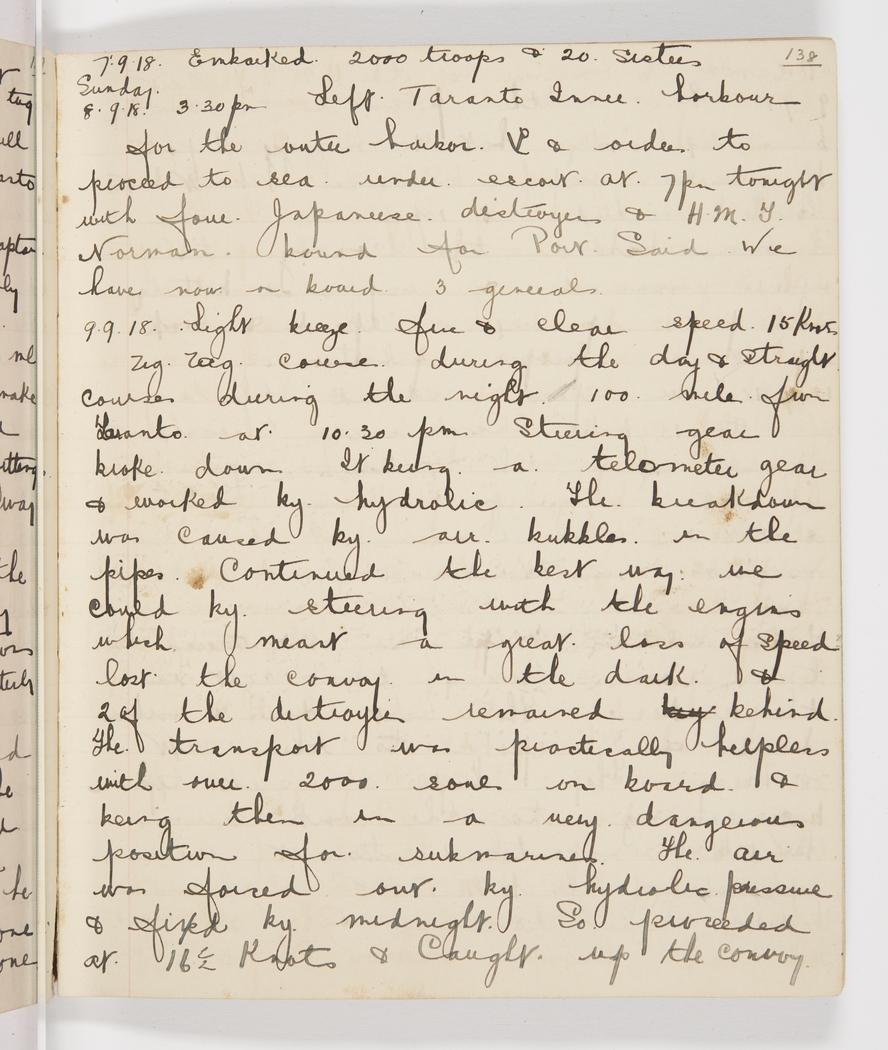 138
7.9.18. Embarked. 2000 troops & 20. Sisters
Sunday.
8.9.18. 3.30pm Left. Taranto Inner. harbour
for the outer harbor. & orders to
proceed to sea. under. escort. at. 7pm tonight
with four. Japaneese. destroyers & H.M.T.
Norman. bound for Port. Said We
have now on board. 3 generals.
9.9.18. Light breeze. fine & clear speed. 15 Knots
Zig. Zag. course. during the day & straight
courses during the night. 100. mile. from
Taranto. at. 10.30 pm Steering gear
broke. down It being. a. telometer gear
& worked by. hydrolic. The. breakdown
was caused by. air. bubbles. in the
pipes. Continued the best way. we
could by. steering with the engins
which. meant a great. loss of speed
lost. the convoy. in the dark. &
2 of the distroyers remained by behind.
The. transport was practically helpless
with over. 2000. sones on board. &
being then in a very. dangerous
position for. submarines. The. air
was forced out. by. hydrolic pressure
& fixed by. midnight. So proceeded
at. 16½ Knots & Caught. up the convoy.